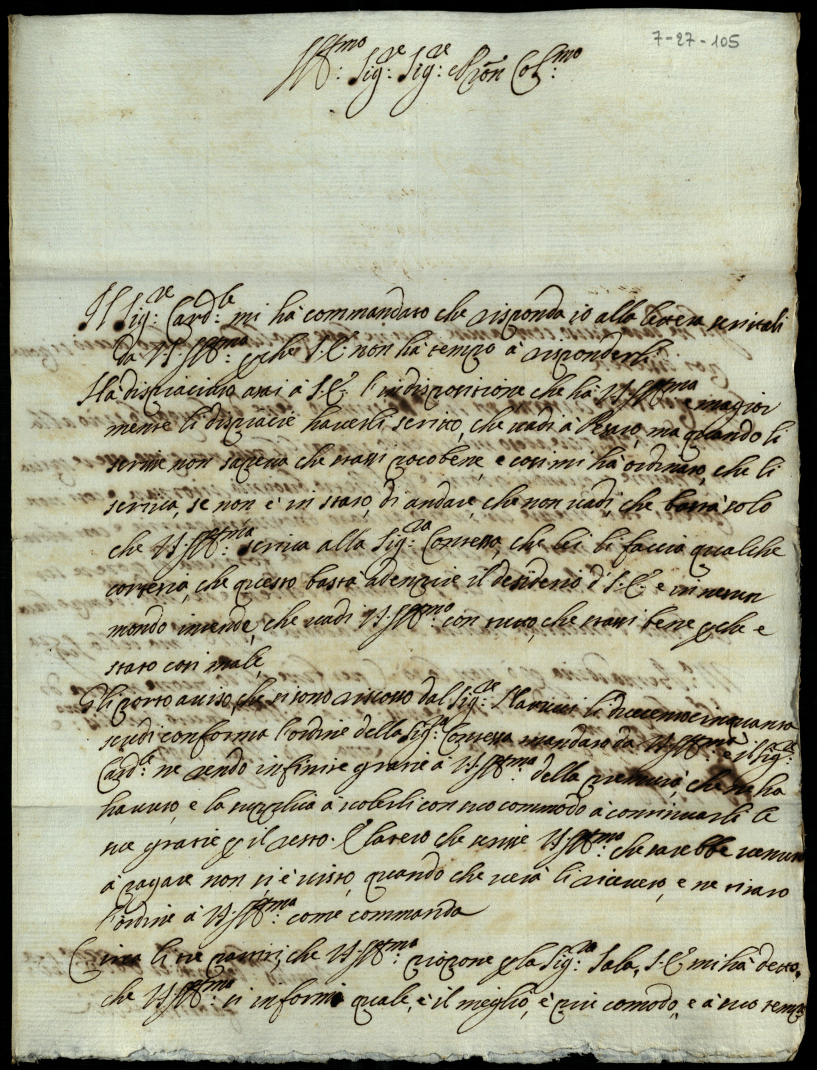 7-27-105
Ill.mo Sig.re Sig.re Pron Col.mo
Il Sig.re Card.le mi hà commandato che risponda io alla lettera scrittali
da V.S. Ill.ma perche S.E. non hà tempo à risponderli
Ha dispiaciuto assi a S.E. l'indispositione che hà V.S. Ill.ma e magior
mente li dispiacie haverli scritto, che vadi a Pesaro, ma quando li
scrisse non sapeva che stassi poco bene, e cosi mi hà ordinato, che li
scriva, se non è in stato, di andare, che non vadi, che basta solo
che V.S. Ill.ma scriva alla Sig.ra Contessa, che lei li faccia qualche
cortesia, che questo basta adempire il desiderio di S.E. e in nesun
mondo intende, che vadi V.S. Ill.ma con tutto, che stassi bene perche e
stato cosi male,
Gli porto aviso, che si sono riscosso dal Sig.re li ducentocinquanta
scudi conforma l'ordine della Sig.ra Contessa mandato da V.S. Ill.ma e il Sig.re
Card.le ne rendo infinite gratie à V.S. Ill.ma della premura, che ne ha
havuto, e la supplica à volerli con suo commodo à continuarli le
sue gratie per il resto. E l'altro che scrisse V.S. Ill.ma che sarebbe venuto
à pagare non si è visto, quando che verà li ricevero, e ne tiraro
l'ordine à V.S. Ill.ma come commanda
Circa li tre partiti, che V.S. Ill.ma propone per la Sig.ra Sala, S.E. mi hà detto,
che V.S. Ill.ma si informi quale, è il meglio, è più comodo, e à suo tempo